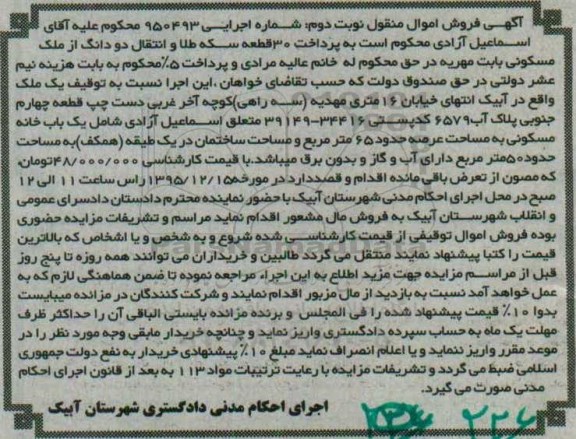 آگهی فروش اموال منقول نوبت دوم: شماره اجرایی ۹۵۰۴۹۳ محکوم علیه آقای
اسماعیل آزادی محکوم است به پرداخت ۳۰قطعه سکه طلا و انتقال دو دانگ از ملک
مسکونی بابت مهریه در حق محکوم له خانم عالیه مرادی و پرداخت ۵٪محکوم به بابت هزینه نیم
عشر دولتی در حق صندوق دولت که حسب تقاضای خواهان ،این اجرا نسبت به توقیف یک ملک
واقع در آبیک انتهای خیابان ۱۶ متری مهدیه (سه راهی)کوچه آخر غربی دست چپ قطعه چهارم
جنوبی پلاک آب۶۵۷۹ کدپستی ۳۴۴۱۶-۳۹۱۴۹ متعلق اسماعیل آزادی شامل یک باب خانه
مسکونی به مساحت عرصه حدود۶۵ متر مربع و مساحت ساختمان در یک طبقه (همکف)به مساحت
حدود۵۰متر مربع دارای آب و گاز و بدون برق میباشد.با قیمت کارشناسی ۴۸/۰۰۰/۰۰۰تومان،
که مصون از تعرض باقی مانده اقدام و قصددارد در مورخه۱۳۹۵/۱۲/۱۵ راس ساعت ۱۱ الی ۱۲
صبح در محل اجرای احکام مدنی شهرستان آبیک با حضور نماینده محترم دادستان دادسرای عمومی
و انقلاب شهرستان آبیک به فروش مال مشعور اقدام نماید مراسم و تشریفات مزایده حضوری
بوده فروش اموال توقیفی از قیمت کارشناسی شده شروع و به شخص و یا اشخاص که بالاترین
قیمت را کتبا پیشنهاد نمایند منتقل می گردد طالبین و خریداران می توانند همه روزه تا پنج روز
قبل از مراسم مزایده جهت مزید اطلاع به این اجراء مراجعه نموده تا ضمن هماهنگی لازم که به
عمل خواهد آمد نسبت به بازدید از مال مزبور اقدام نمایند و شرکت کنندگان در مزانده میبایست
بدوا ۱۰٪ قیمت پیشنهاد شده را فی المجلس و برنده مزانده بایستی الباقی آن را حداکثر ظرف
مهلت یک ماه به حساب سپرده دادگستری واریز نماید و چنانچه خریدار مابقی وجه مورد نظر را در
موعد مقرر واریز ننماید و یا اعلام انصراف نماید مبلغ ۱۰٪ پیشنهادی خریدار به نفع دولت جمهوری
اسلامی ضبط می گردد و تشریفات مزایده با رعایت ترتیبات مواد۱۱۳ به بعد از قانون اجرای احکام
مدنی صورت می گیرد.
اجرای احکام مدنی دادگستری شهرستان آبیک
۲۲۶